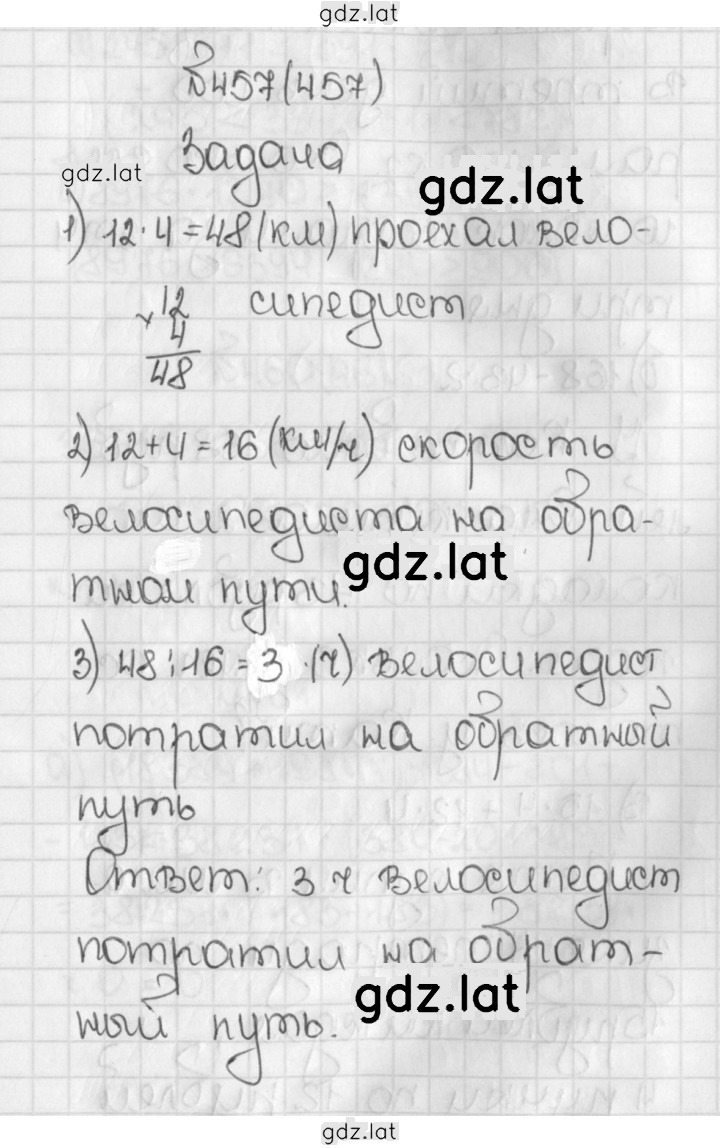 gdz.lat
№457(457)
Задача
gdz.lat
gdz.lat
1) 12·4=48(км) проехал вело-
сипедист
×12
4
48
2) 12+4=16(км/ч) скорость
велосипедиста на обра-
gdz.lat
тном пути.
3) 48:16=3·(ч) велосипедист
потратил на обратный
путь
Ответ: 3 ч велосипедист
потратил на обрат-
gdz.lat
ный путь.
gdz.lat